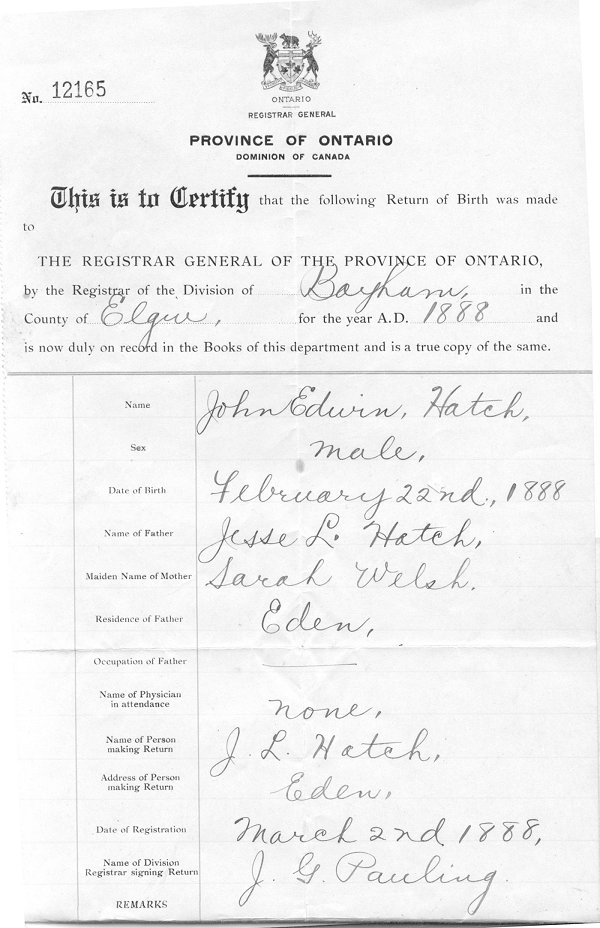 No. 12165
ONTARIO
REGISTRAR GENERAL
PROVINCE OF ONTARIO
DOMINION OF CANADA
This is to Certify that the following Return of Birth was made
to
THE REGISTRAR GENERAL OF THE PROVINCE OF ONTARIO,
by the Registrar of the Division of Bayham, in the
County of Elgin, for the year A.D. 1888 and
is now duly on record in the Books of this department and is a true copy of the same.
Name John Edwin, Hatch,
Sex male,
Date of Birth February 22nd, 1888
Name of Father Jesse L. Hatch,
Maiden Name of Mother Sarah Welsh.
Residence of Father Eden,
Occupation of Father —
Name of Physician
in attendance none,
Name of Person
making Return J. L. Hatch,
Address of Person
making Return Eden,
Date of Registration March 2nd 1888,
Name of Division
Registrar signing Return J. G. Pauling.
REMARKS